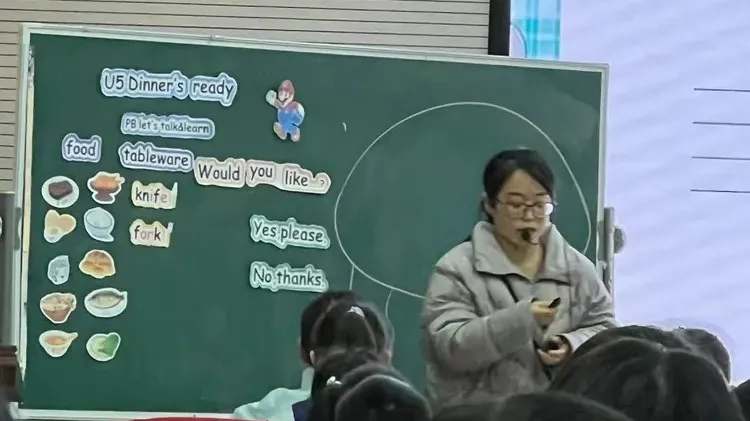 U5 Dinner's ready
PB let's talk&learn
food
tableware
Would you like...?
knife
fork
Yes,please.
No,thanks.